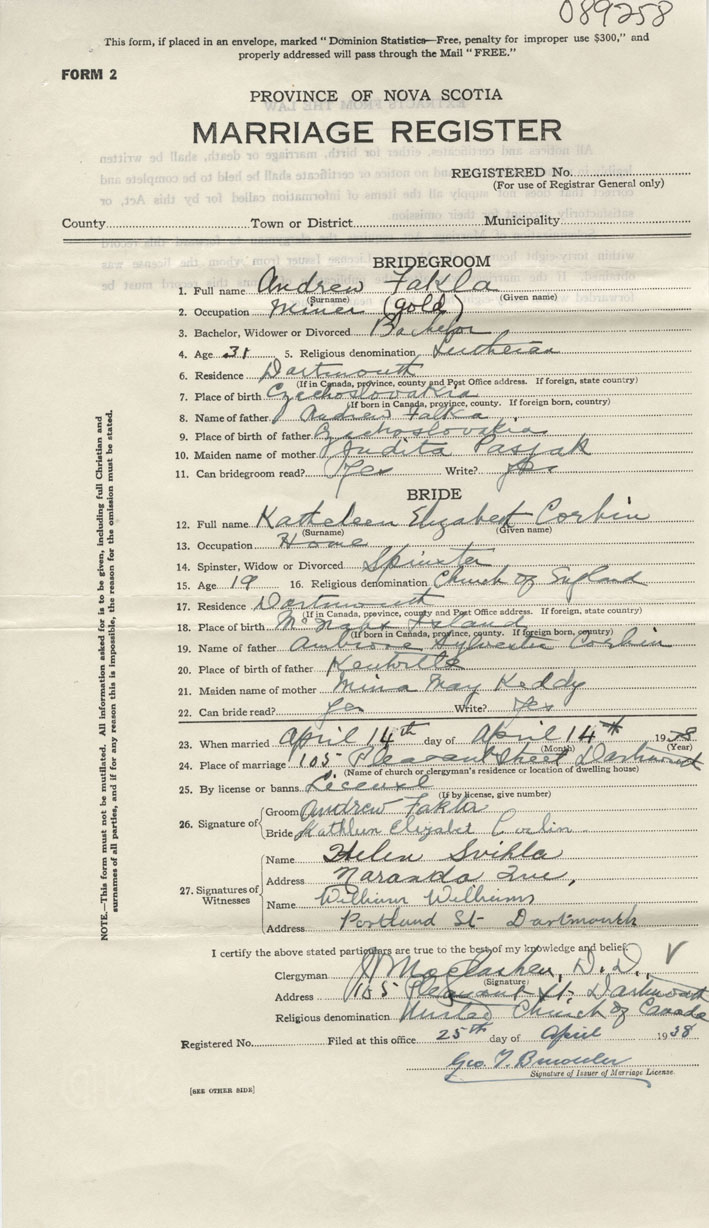 089258
This form, if placed in an envelope, marked "Dominion Statistics—Free, penalty for improper use $300," and
properly addressed will pass through the Mail "FREE."
FORM 2
PROVINCE OF NOVA SCOTIA
MARRIAGE REGISTER
REGISTERED No.
(For use of Registrar General only)
County Town or District Municipality
BRIDEGROOM
1. Full name Andrew Fakla
(Surname) (Given name)
2. Occupation Miner (gold)
3. Bachelor, Widower or Divorced Bachelor
4. Age 31 5. Religious denomination Lutheran
6. Residence Dartmouth
(If in Canada, province, county and Post Office address. If foreign, state country)
7. Place of birth Czechoslovakia
(If born in Canada, province, county. If foreign born, country)
8. Name of father Andrew Falka
9. Place of birth of father Czechoslovakia
10. Maiden name of mother Judita Pasjak
11. Can bridegroom read? Yes Write? Yes
BRIDE
12. Full name Katheleen Elizabeth Corbin
(Surname) (Given name)
13. Occupation Home
14. Spinster, Widow or Divorced Spinster
15. Age 19 16. Religious denomination Church of England
17. Residence Dartmouth
(If in Canada, province, county and Post Office address. If foreign, state country)
18. Place of birth McNabs Island
(If born in Canada, province, county. If foreign born, country)
19. Name of father Ambrose Sylvester Corbin
20. Place of birth of father Kentville
21. Maiden name of mother Mina May Keddy
22. Can bride read? Yes Write? Yes
23. When married April 14th day of April 14th 1938
(Month) (Year)
24. Place of marriage 105 Pleasant Street Dartmouth
(Name of church or clergyman's residence or location of dwelling house)
25. By license or banns License
(If by license, give number)
26. Signature of Groom Andrew Fakla
Bride Kathleen Elizabet Corbin
27. Signatures of Witnesses
Name Helen Svihla
Address Naranda Ave,
Name William Williams
Address Portland St- Dartmouth
I certify the above stated particulars are true to the best of my knowledge and belief.
Clergyman D.D.
(Signature)
Address 105 Pleasant St. Dartmouth
Religious denomination United Church of Canada
Registered No. Filed at this office 25th day of April 1938
Geo. T.
Signature of Issuer of Marriage License.
[SEE OTHER SIDE]
NOTE.—This form must not be mutilated. All information asked for is to be given, including full Christian and
surnames of all parties, and if for any reason this is impossible, the reason for the omission must be stated.